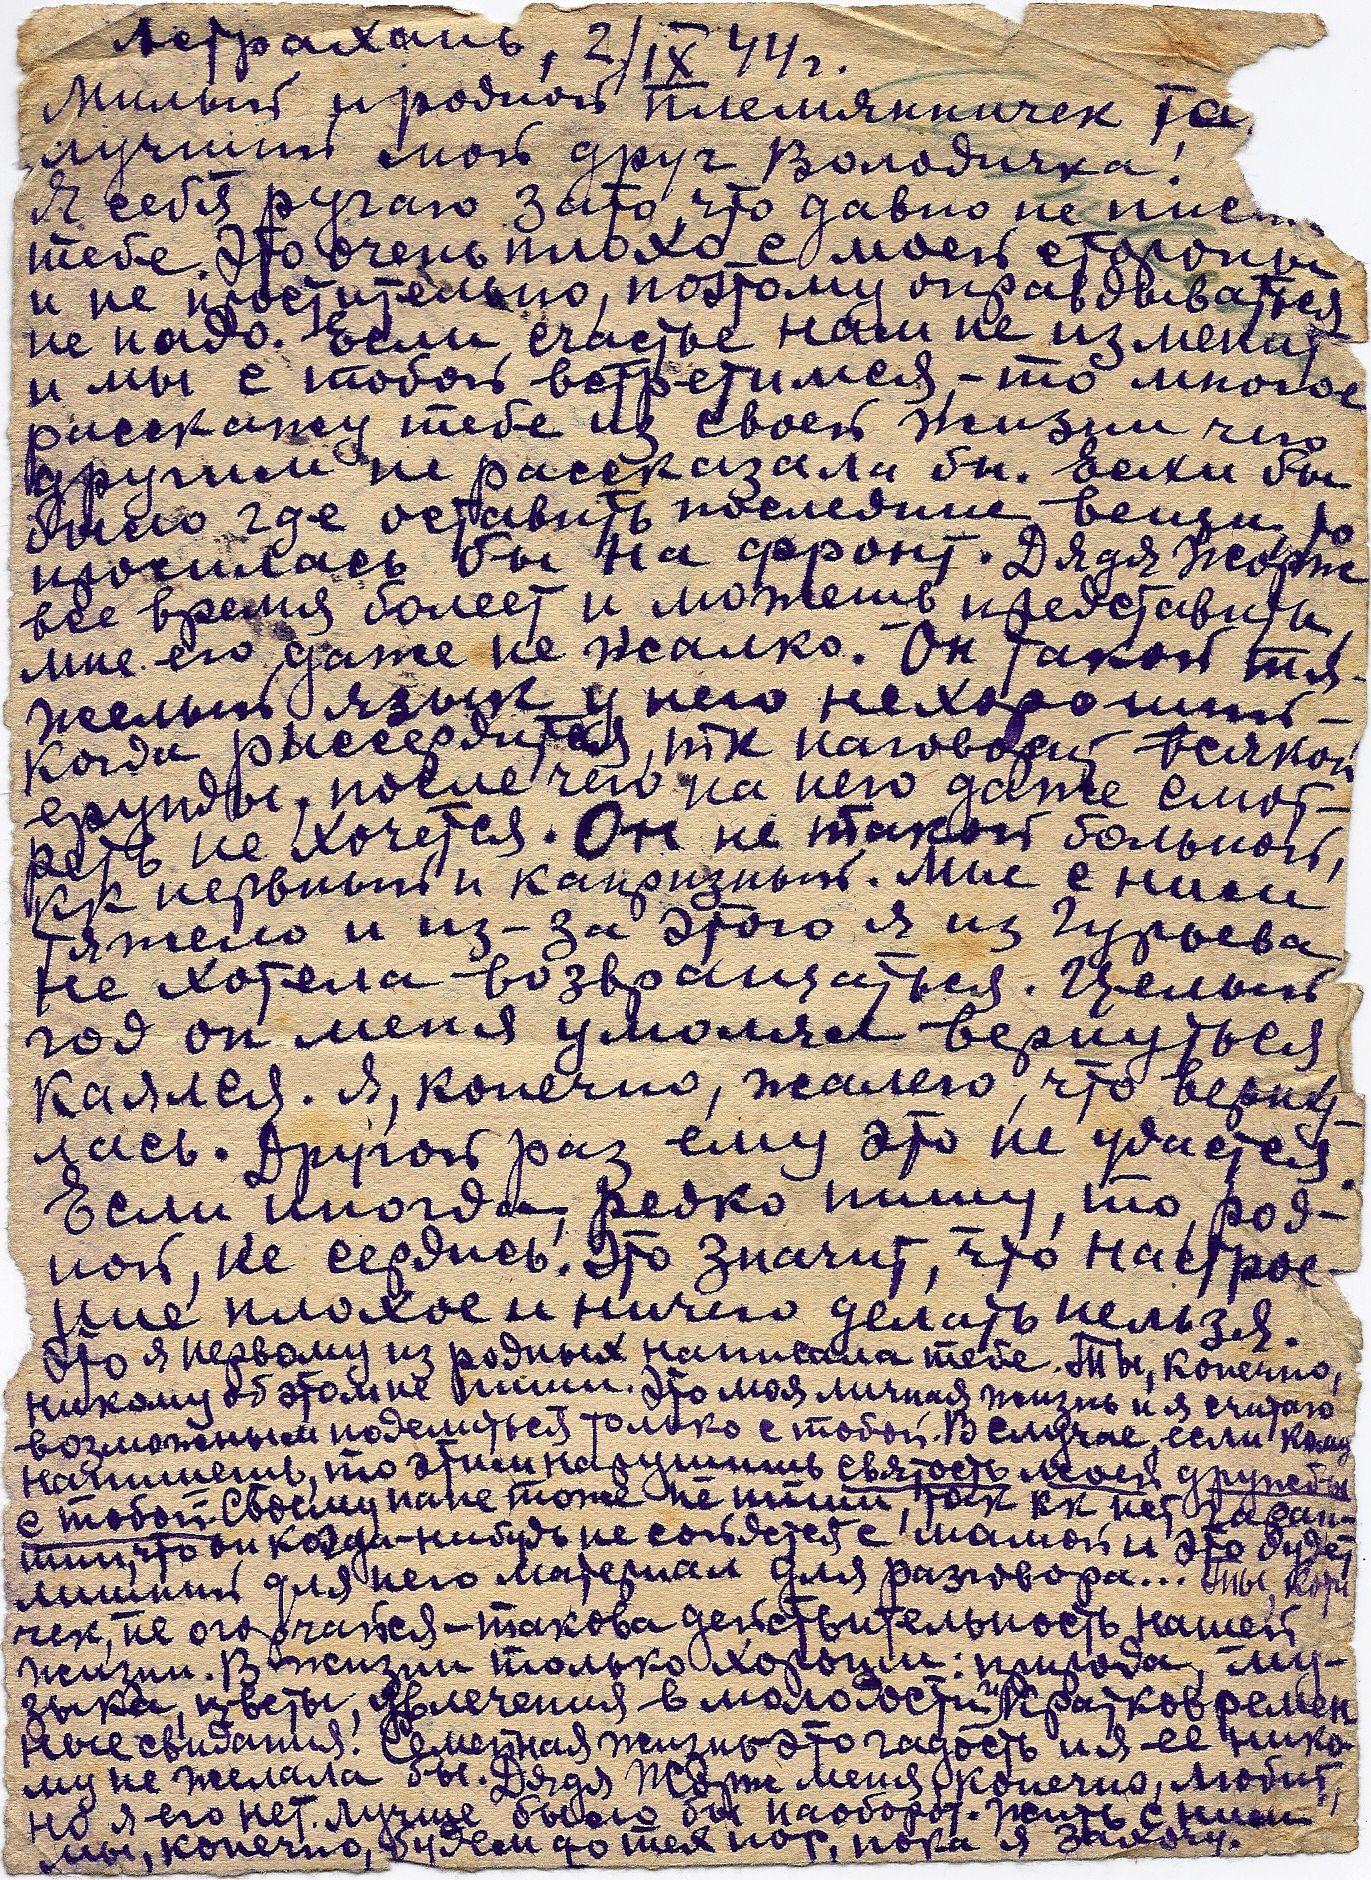 Астрахань, 2/IX 44 г.
Милый и родной племянничек та
лучший мой друг Володичка!
Я себя ругаю зато, что давно не
тебе. Это очень плохо с моей стороны
и не простительно, поэтому оправдываться
не надо. Если счастье нам не изменит
и мы с тобой встретимся, - то многое
расскажу тебе из своей жизни чего
другим не рассказала бы. Если бы
было где оставить последние вещи, то
просилась бы на фронт. Дядя Жорж
все время болеет и можешь представить,
мне его даже не жалко. Он такой тя-
желый язык у него нехороший -
когда рассердится, тк наговорит всякой
ерунды, после чего на него даже смот-
реть не хочется. Он не такой больной,
кк нервный и капризный. Мне с ним
тяжело и из-за этого я из Гурьева
не хотела возвращаться. Целый
год он меня умолял вернуться
каялся. Я, конечно, жалею, что верну-
лась. Другой раз ему это не удастся.
Если иногда, редко пишу, то, род-
ной, не сердись. Это значит, что настрое-
ние плохое и ничего делать нельзя.
Это я первому из родных написала тебе. Ты, конечно,
никому об этом не пиши. Это моя личная жизнь и я считаю
возможным поделиться только с тобой. В случае, если кому
напишешь, то этим нарушишь святость моей дружбы
с тобой. Своему папе тоже не пиши, так кк нет гаран-
тии, что он когда-нибудь не сойдется с мамой и это будет
лишний для него материал для разговора... Ты, коти
чек, не огорчайся - такова действительность нашей
жизни. В жизни только хороши: природа, му-
зыка, цветы, увлечения в молодости и кратковремен
ные свидания. Семейная жизнь это гадость и я ее нико-
му не желала бы. Дядя Жорж меня, конечно, любит,
но я его нет. Лучше было бы наоборот. Жить с ним
мы, конечно, будем до тех пор, пока я захочу.